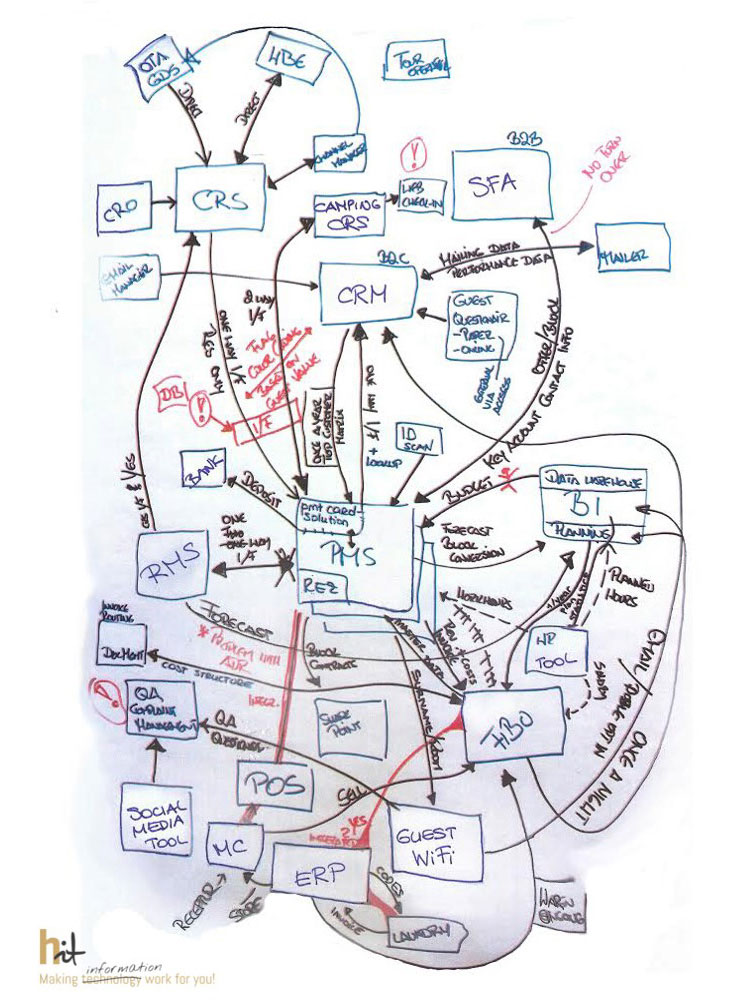 OTA
GDS
WBE
TOUR
OPERATOR
DIRECT
DIRECT
CHANNEL
MANAGER
CRO
CRS
CAMPING
CRS
!
WEB
CHECK-IN
B2B
SFA
NO TURN
OVER
EMAIL
MANAGER
B2C
CRM
MAILING DATA
PERFORMANCE DATA
MAILER
GUEST
QUESTIONAIR
- PAPER
- ONLINE
EXTERNAL
VIA
ACCESS
2 WAY
I/F
ONE WAY I/F
RES ONLY
FLAG
COLOR CODING
BASED ON
GUEST VALUE
DB
!
I/F
ONCE A YEAR
TOP CUSTOMER
MATRIX
ONE WAY I/F +
LOOKUP
ID
SCAN
OFFER/BLOCK
KEY ACCOUNT CONTACT INFO
BANK
DEPOSIT
pmt card-
solution
PMS
REZ
BUDGET
DATA WAREHOUSE
BI
PLANNING
FORECAST
BLOCK
CONVERSION
RMS
ONE
TWO
ONE WAY
I/F
FORECAST
* PROBLEM WITH
AIR
INVOICE
ROUTING
DOCMGMT
COST STRUCTURE
BLOCK
CONTRACTS
WORKHOURS
PLANNED
HOURS
HR
TOOL
!
QA
COMPLAINT
MANAGEMENT
QA
QUESTIONS
SHARE
POINT
HBO
EMAIL/
DOUBLE OPT IN
ONCE A NIGHT
SOCIAL
MEDIA
TOOL
POS
SELL
MC
YES
?
GUEST
WIFI
ERP
RECEPTUR
STORE
CODES
INVOICE
LAUNDRY
WAREN
EINGANG
hit
information
Making technology work for you!